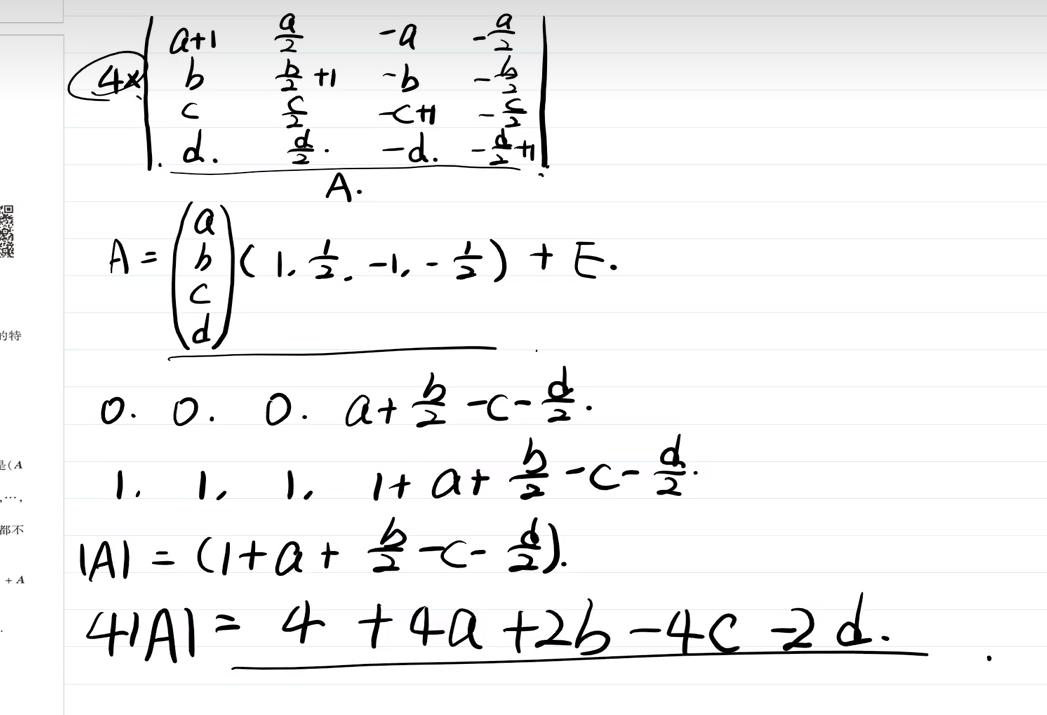 4× | a+1 a/2 -a -a/2 |
| b b/2+1 -b -b/2 |
| c c/2 -c+1 -c/2 |
| d. d/2. -d. -d/2+1 |
A.
A = (a b c d) (1, 1/2, -1, -1/2) + E.
的特
0. 0. 0. a+b/2-c-d/2.
是(A
1. 1, 1, 1+a+b/2-c-d/2.
,…,
都不
|A| = (1+a+b/2-c-d/2).
+A
4|A| = 4+4a+2b-4c-2d.